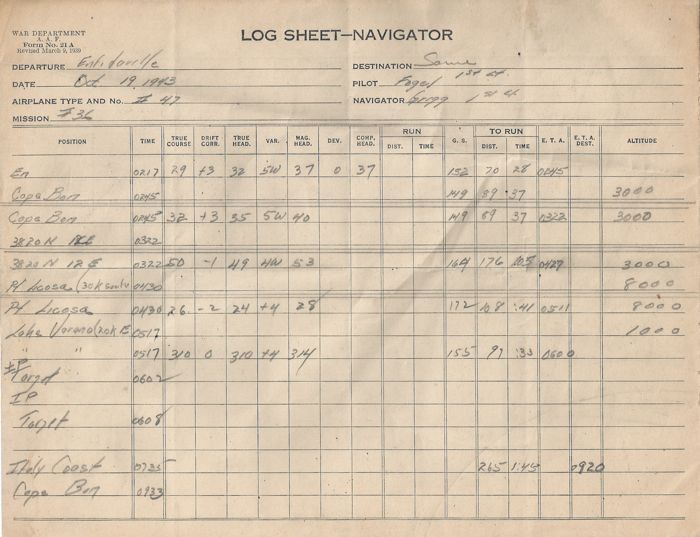 WAR DEPARTMENT
A. A. F.
Form No. 21A
Revised March 9, 1939
LOG SHEET—NAVIGATOR
DEPARTURE Enfidaville
DESTINATION Same
DATE Oct 19, 1943
PILOT Fogel 1st Lt.
AIRPLANE TYPE AND No. # 47
NAVIGATOR 1st Lt
MISSION #36
POSITION TIME TRUE COURSE DRIFT CORR. TRUE HEAD. VAR. MAG. HEAD. DEV. COMP. HEAD. RUN DIST. TIME G. S. TO RUN DIST. TIME E. T. A. E. T. A. DEST. ALTITUDE
En 0217 29 +3 32 5W 37 0 37 152 70 28 0245
Cape Bon 0245 149 89 :37 3000
Cape Bon 0245 32 +3 35 5W 40 149 89 37 0322 3000
3820 N 12E 0322
3820 N 12 E 0322 50 -1 49 4W 53 164 176 1:05 0427 3000
Pt Licosa (30K 0430 8000
Pt Licosa 0430 26 -2 24 +4 28 172 108 :41 0511 8000
Lake Varano (20K E 0517 1000
" " 0517 310 0 310 +4 314 155 91 :33 0600
IP
Target 0602
IP
Target 0608
Italy Coast 0735 265 1:45 0920
Cape Bon 0933